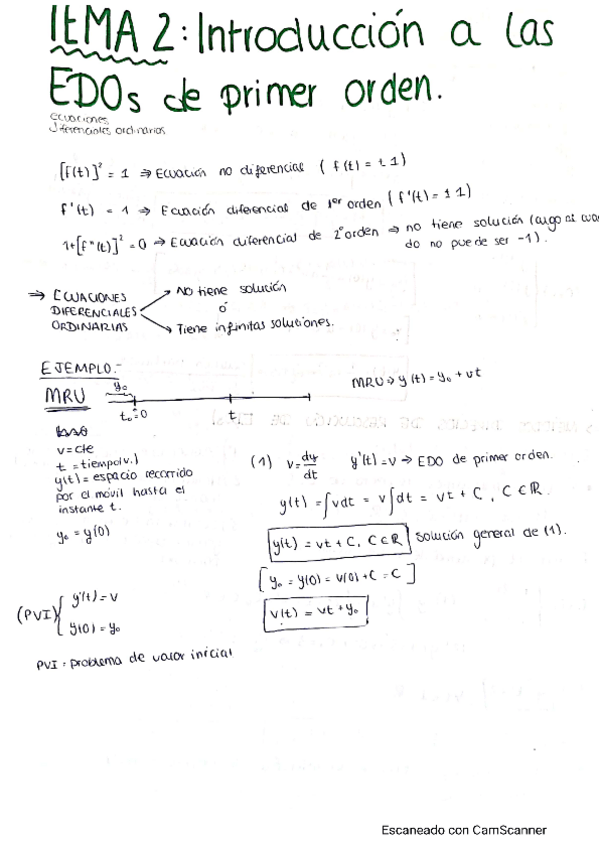 TEMA 2: Introducción a las
EDOs de primer orden.
Ecuaciones
Diferenciales ordinarias
[f(t)]² = 1 ⇒ Ecuación no diferencias ( f(t) = ± 1)
f'(t) = 1 ⇒ Ecuación diferencial de 1er orden ( f'(t) = ± 1)
1+[f''(t)]² = 0 ⇒ Ecuación diferencial de 2º orden ⇒ no tiene solución (algo al cua
do no puede ser -1).
⇒ ECUACIONES
DIFERENCIALES
ORDINARIAS
No tiene solución
ó
Tiene infinitas soluciones.
EJEMPLO.-
MRU
y₀
t₀=0
t
MRU ⇒ y(t) = y₀ + vt
v = cte
t = tiempo(v.)
y(t) = espacio recorrido
por el móvil hasta el
instante t.
y₀ = y(0)
(1) v = dy/dt y'(t) = v → EDO de primer orden.
y(t) = ∫vdt = v∫dt = vt + C, C ∈ ℝ.
y(t) = vt + C, C ∈ ℝ solución general de (1).
[ y₀ = y(0) = v(0) + C = C ]
v(t) = vt + y₀
(PVI) { y'(t) = v
y(0) = y₀
PVI: problema de valor inicial
Escaneado con CamScanner